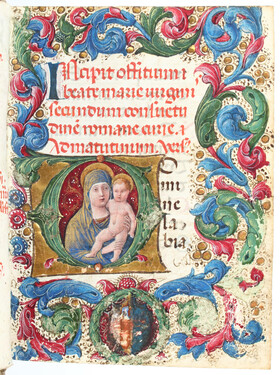 INcipit offitium
beate marie uirgini
secundum consueti
dinē romane curie. a
Ad matutinum. Vers.
Domi
ne
la
bia